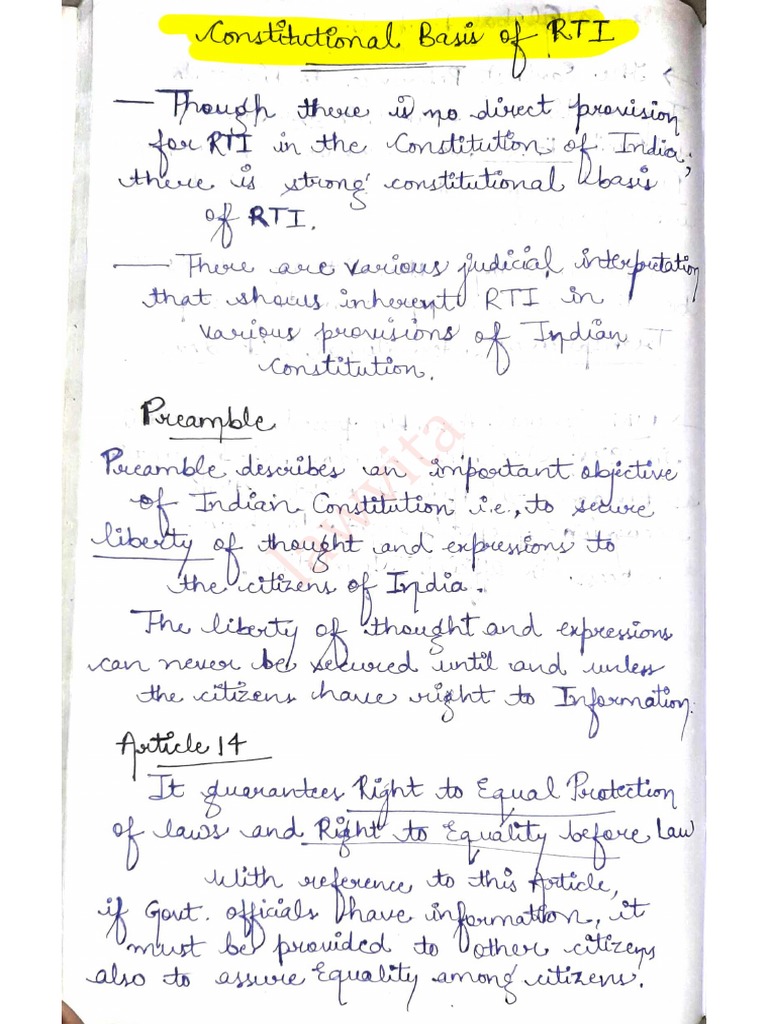 Constitutional Basis of RTI
— Though there is no direct provision
for RTI in the Constitution of India,
there is strong constitutional basis
of RTI.
— There are various judicial interpretation
that shows inherent RTI in
various provisions of Indian
Constitution.
Preamble
Preamble describes an important objective
of Indian Constitution i.e., to secure
liberty of thought and expressions to
the citizens of India.
The liberty of thought and expressions
can never be secured until and unless
the citizens have right to Information.
Article 14
It guarantees Right to Equal Protection
of laws and Right to Equality before Law
With reference to this Article,
if Govt. officials have information, it
must be provided to other citizens
also to assure Equality among citizens.
lawvita